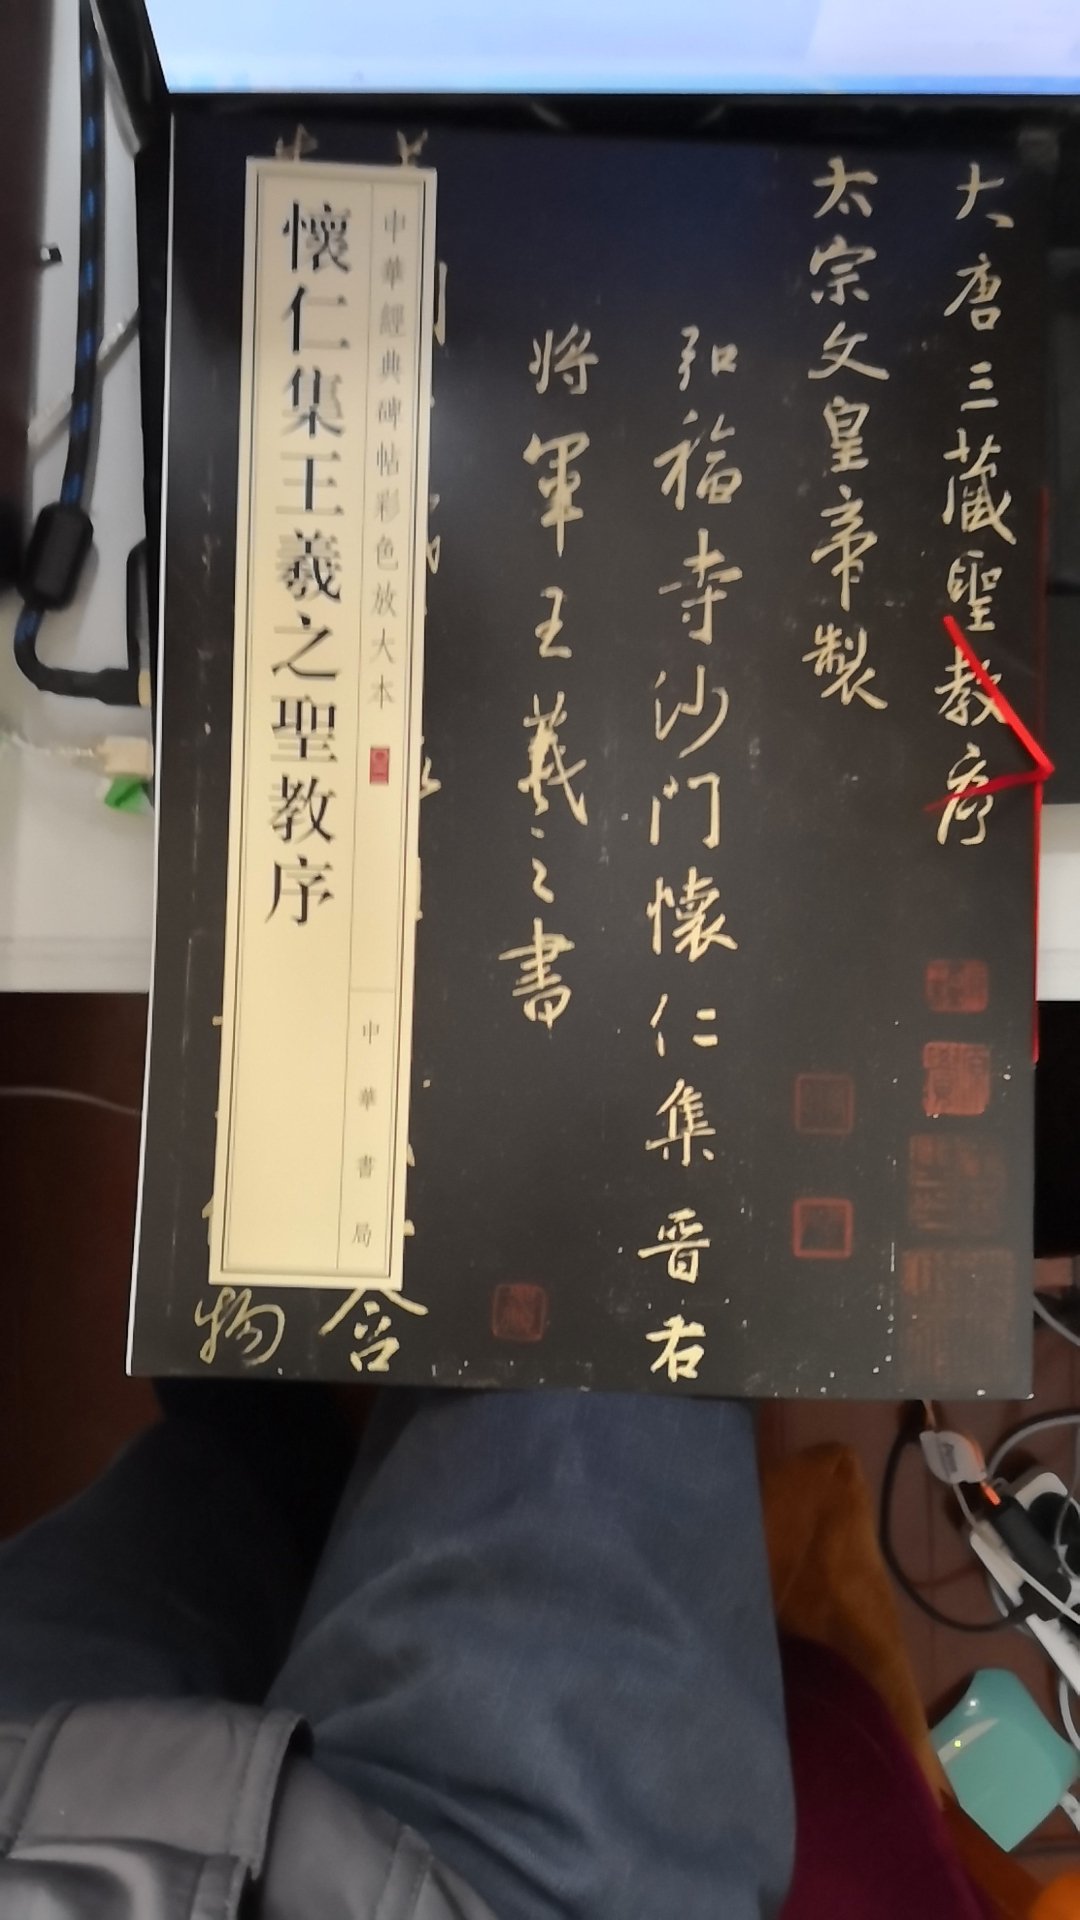 大唐三藏聖教序
太宗文皇帝製
弘福寺沙門懷仁集晋右
將軍王羲之書
含
物
中華經典碑帖彩色放大本
中華書局
懷仁集王羲之聖教序